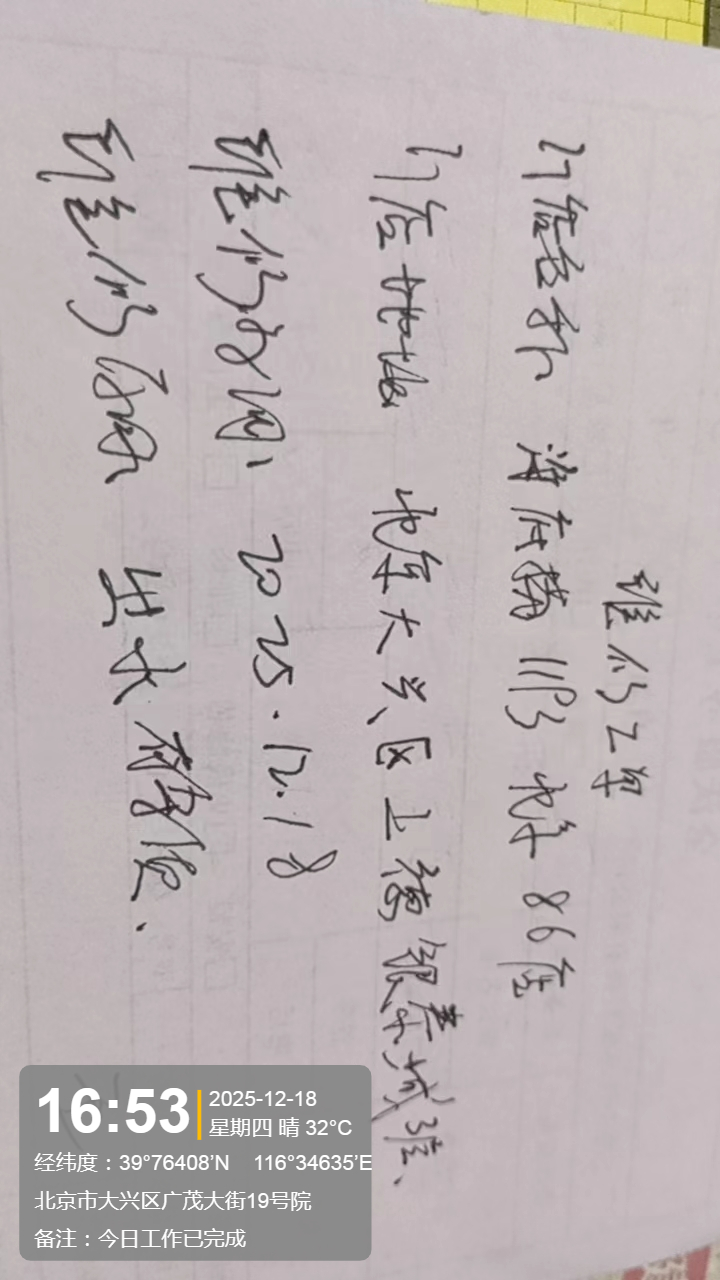 维修工单
门店名称 海底捞 11号 北京 86店
门店地址 北京大兴区上德银泰城店、
维修时间 2025.12.18
维修
出水有
16:53
2025-12-18
星期四 晴 32°C
经纬度：39°76408’N 116°34635’E
北京市大兴区广茂大街19号院
备注：今日工作已完成